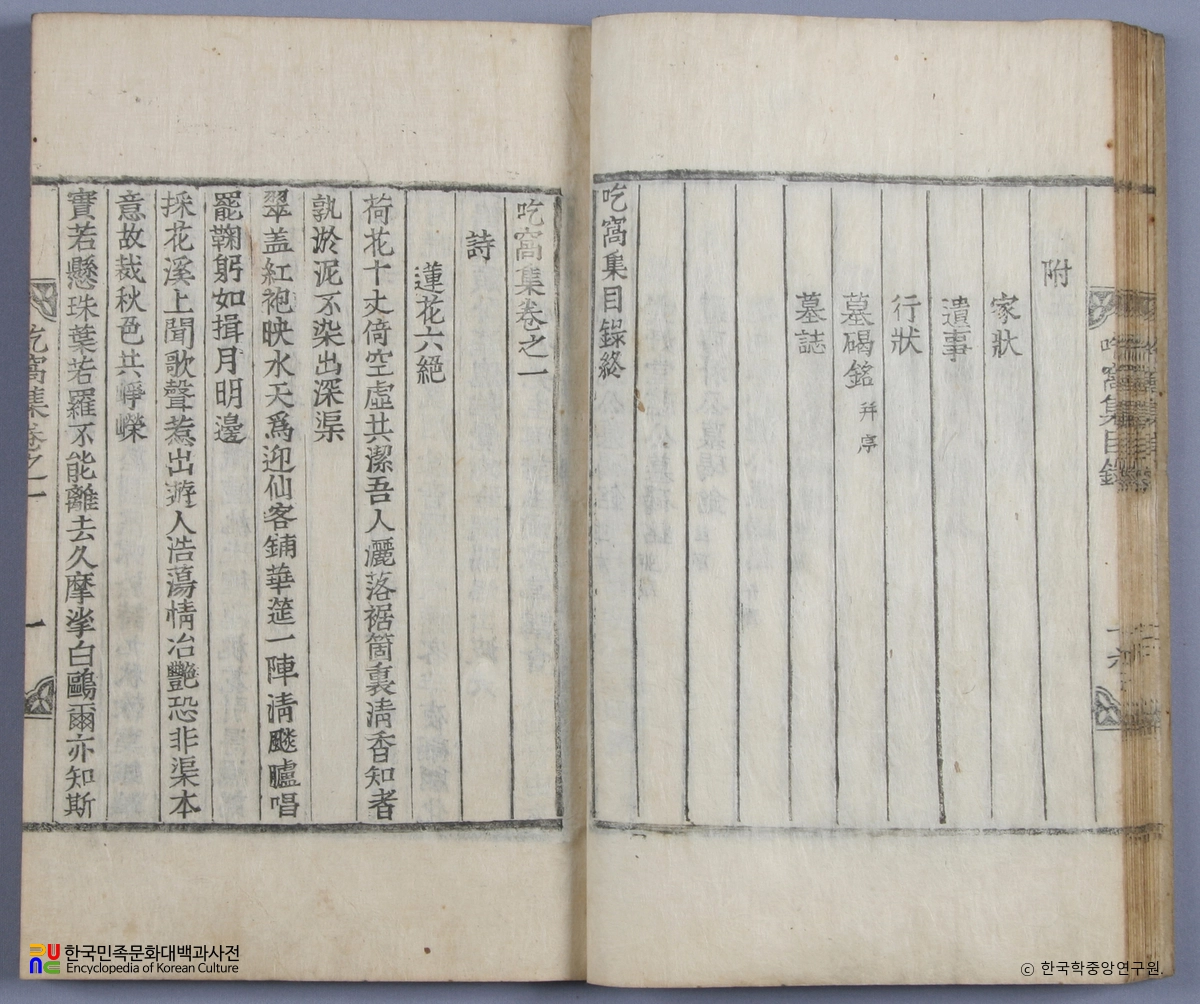 吃窩集目錄
附
家狀
遺事
行狀
墓碣銘 并序
墓誌
吃窩集目錄終
吃窩集卷之一
詩
蓮花六絕
荷花十丈倚空虛共潔吾人灑落裾箇裏淸香知者
孰淤泥不染出深渠
翠盖紅袍映水天爲迎仙客鋪華筵一陣淸飈臚唱
罷鞠躬如揖月明邊
採花溪上聞歌聲惹出遊人浩蕩情冶艷恐非渠本
意故裁秋色共崢嶸
實若懸珠葉若羅不能離去久摩挲白鷗爾亦知斯
吃窩集卷之一
一
한국민족문화대백과사전
Encyclopedia of Korean Culture
ⓒ 한국학중앙연구원